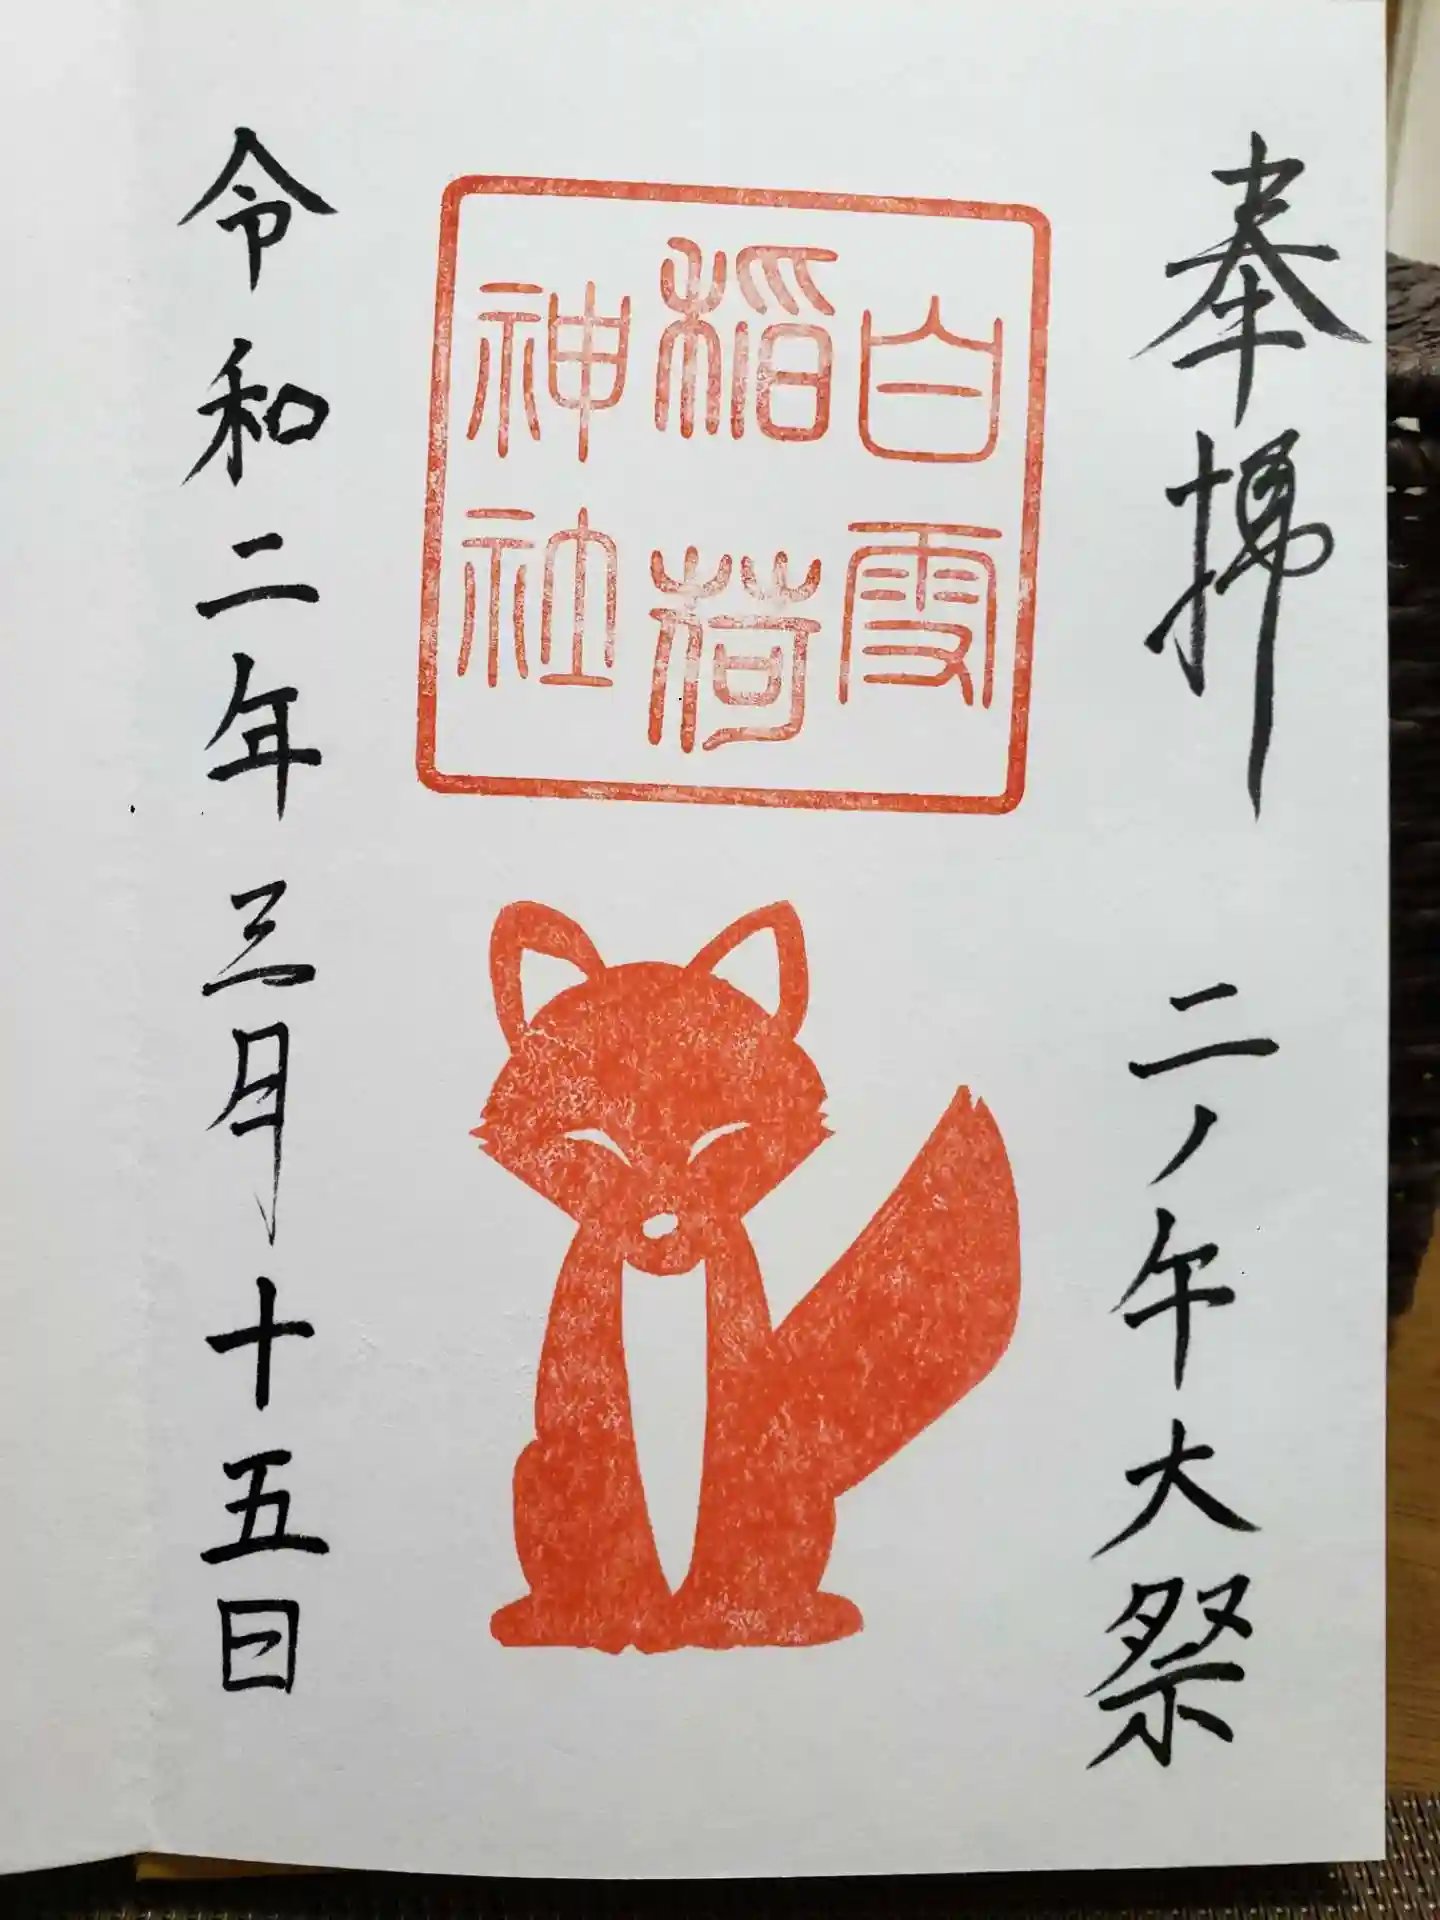 奉拝 二ノ午大祭
白雪
稲荷
神社
令和二年三月十五日